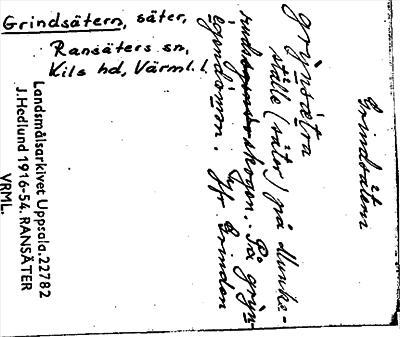 Grindsätern, säter,
Ransäters sn,
Kils hd, Värml. l.
Grindsätern
grinsætra
ställe (säter) på Munke-
rudsskogen. På
egendomen. Jfr Grindon
Landsmålsarkivet Uppsala. 22782
J. Hedlund 1916-54. RANSÄTER
VRML.